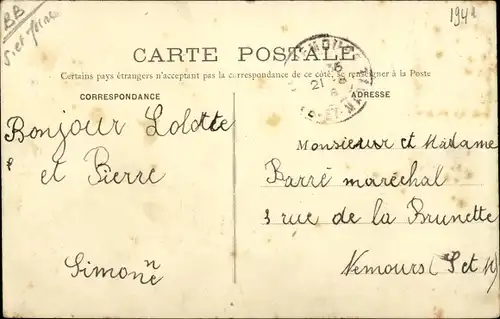 BB
S. et Marne
194
CARTE POSTALE
Certains pays étrangers n'acceptant pas la correspondance de ce côté, se renseigner à la Poste
CORRESPONDANCE
ADRESSE
Bonjour Lolotte
et Pierre
Simonne
Monsieur et Madame
Barré maréchal
3 rue de la Brunette
Nemours (S et M)